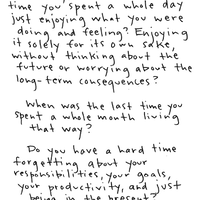 time you spent a whole day
just enjoying what you were
doing and feeling? Enjoying
it solely for its own sake,
without thinking about the
future or worrying about the
long-term consequences?
When was the last time you
spent a whole month living
that way?
Do you have a hard time
forgetting about your
responsibilities, your goals,
your productivity, and just
being in the present?